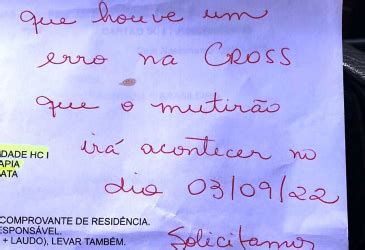 que houve um
erro na CROSS
que o mutirão
irá acontecer no
dia 03/09/22
Solicitamos
DADE HC I
APIA
ATA
COMPROVANTE DE RESIDÊNCIA.
ESPONSÁVEL.
+ LAUDO), LEVAR TAMBÉM.